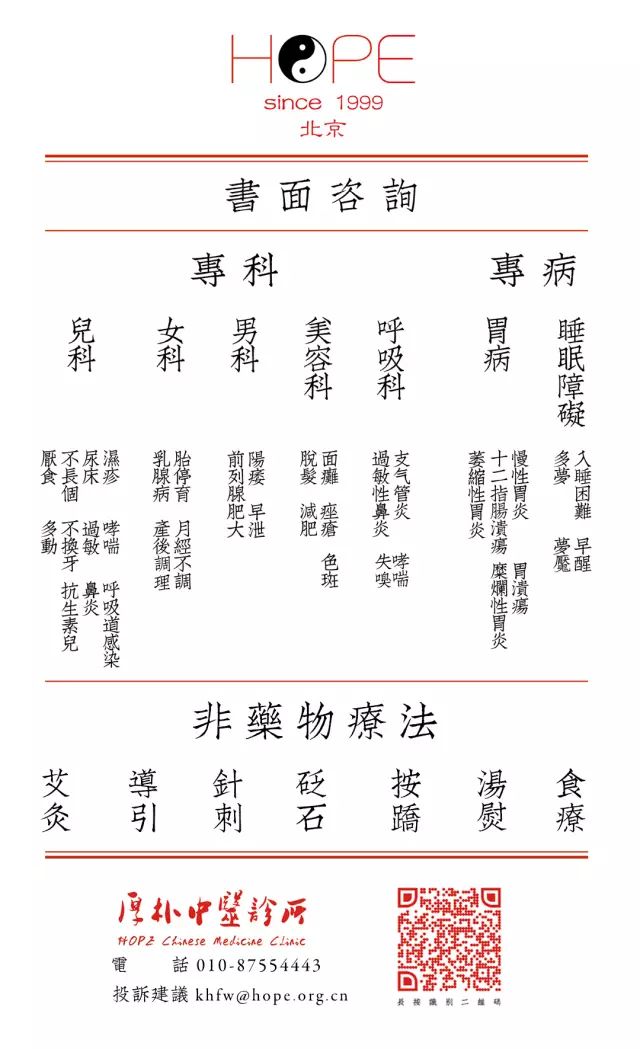 HOPE
since 1999
北京
書面咨詢
專病
睡眠障礙
入睡困難 早醒
多夢 夢魘
胃病
慢性胃炎 胃潰瘍
十二指腸潰瘍 糜爛性胃炎
萎縮性胃炎
專科
呼吸科
支气管炎 哮喘
過敏性鼻炎 失嗅
美容科
面癱 痤瘡 色斑
脫髮 減肥
男科
陽痿 早泄
前列腺肥大
女科
胎停育 月經不調
乳腺病 產後調理
兒科
濕疹 哮喘 呼吸道感染
尿床 過敏 鼻炎
不長個 不換牙 抗生素兒
厭食 多動
非藥物療法
食療
湯熨
按蹻
砭石
針刺
導引
艾灸
厚朴中醫診所
HOPE Chinese Medicine Clinic
電 話 010-87554443
投訴建議 khfw@hope.org.cn
長按識別二維碼